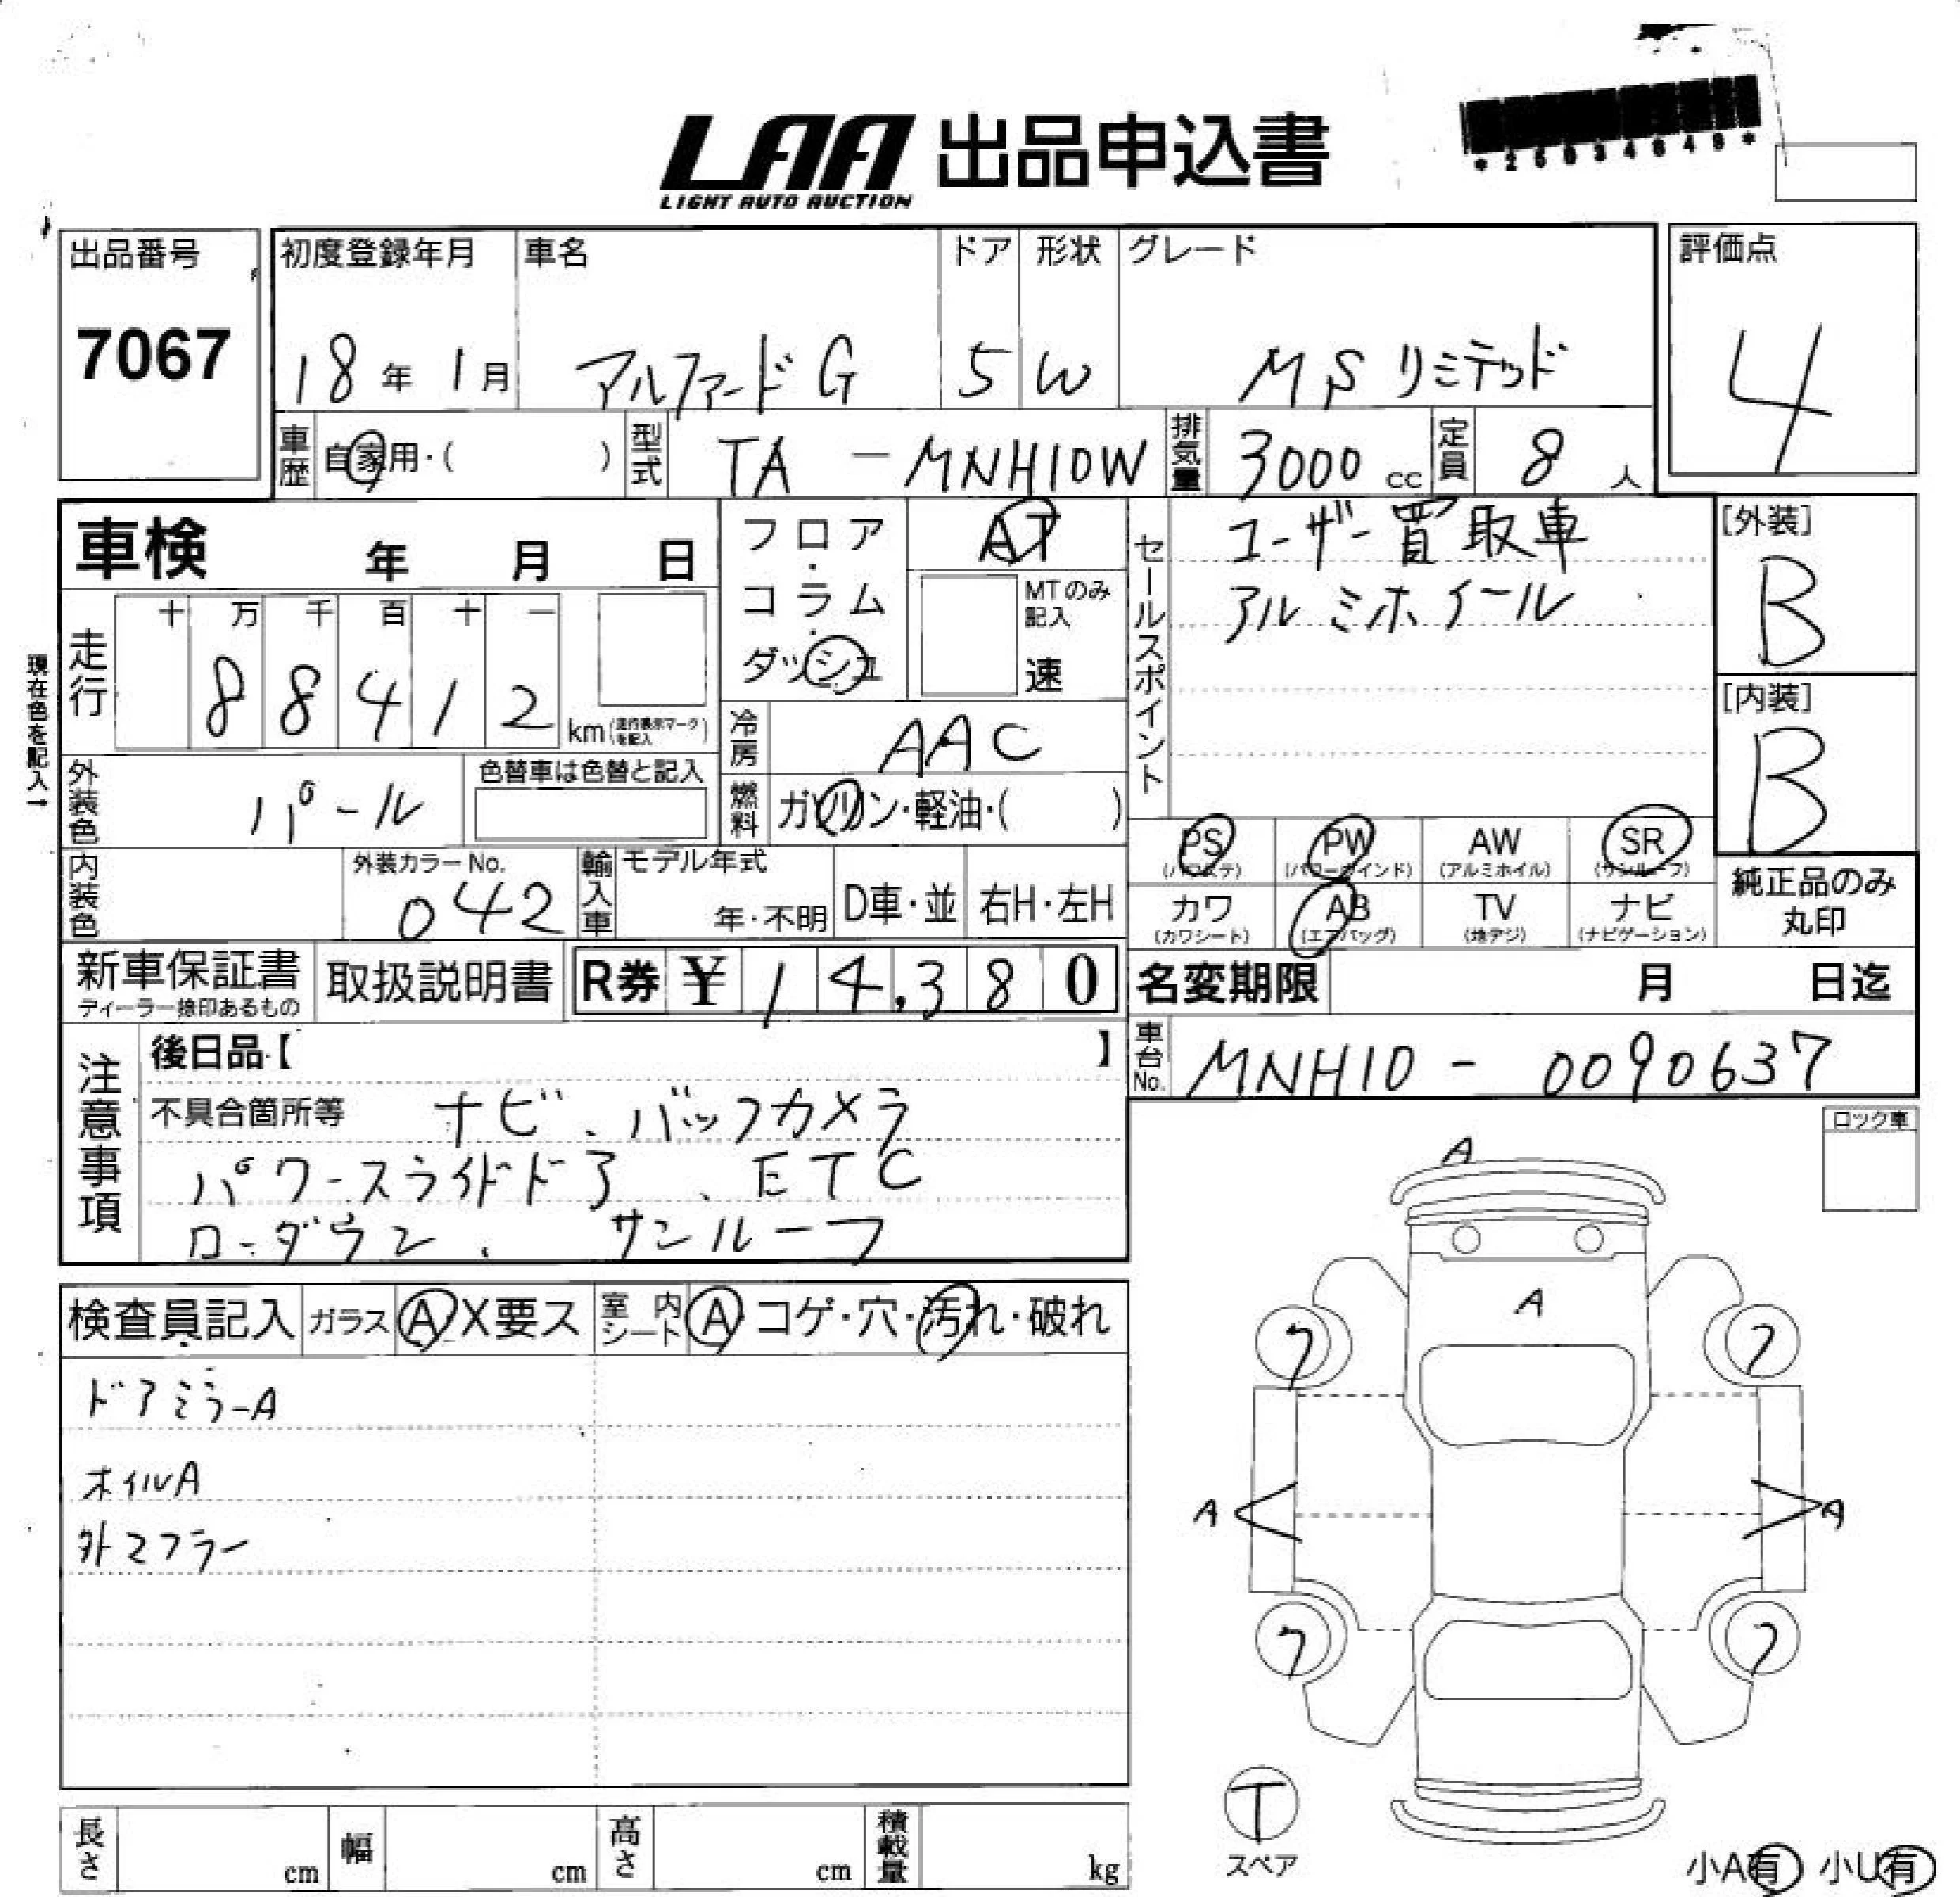 LAA 出品申込書
LIGHT AUTO AUCTION
*25034649*
出品番号 初度登録年月 車名 ドア 形状 グレード 評価点
7067 18年 1月 アルファード G 5 W MS リミテッド 4
車歴 自家用・( ) 型式 TA - MNH10W 排気量 3000 cc 定員 8 人
車検 年 月 日
フロア・コラム・ダッシュ AT
MTのみ記入 速
セールスポイント
ユーザー買取車
アルミホイール
[外装]
B
[内装]
B
現在色を記入→
走行 十 万 千 百 十 一
88412 km (走行表示マークを記入)
冷房 AAC
外装色 パール 色替車は色替と記入
燃料 ガソリン・軽油・( )
PS (パワステ) PW (パワーウインド) AW (アルミホイル) SR (サンルーフ)
カワ (カワシート) AB (エアバッグ) TV (地デジ) ナビ (ナビゲーション)
純正品のみ
丸印
内装色 外装カラーNo. 042 輸入車 モデル年式 年・不明 D車・並 右H・左H
新車保証書 ディーラー捺印あるもの 取扱説明書 R券 ¥14,380
名変期限 月 日迄
車台No. MNH10 - 0090637
注意事項
後日品【 】
不具合箇所等 ナビ、バックカメラ
パワースライドドア、ETC
ローダウン、サンルーフ
ロック車
検査員記入 ガラス A X要ス 室内シート A・コゲ・穴・汚れ・破れ
ドアミラーA
ホイルA
外マフラー
A
A
フ フ
A A
フ フ
T
スペア
長さ cm 幅 cm 高さ cm 積載量 kg
小A有 小U有